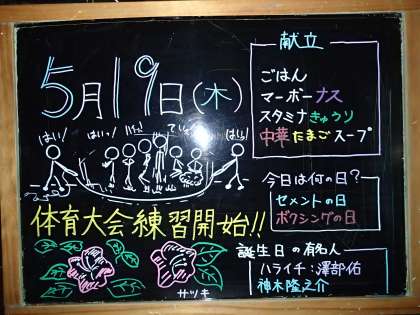 5月19日(木)
はい! はいっ! はいっ! でいっ はいっ!
体育大会練習開始!!
サツキ
献立
ごはん
マーボーナス
スタミナきゅうり
中華たまごスープ
今日は何の日?
セメントの日
ボクシングの日
誕生日の有名人
ハライチ:澤部佑
神木隆之介